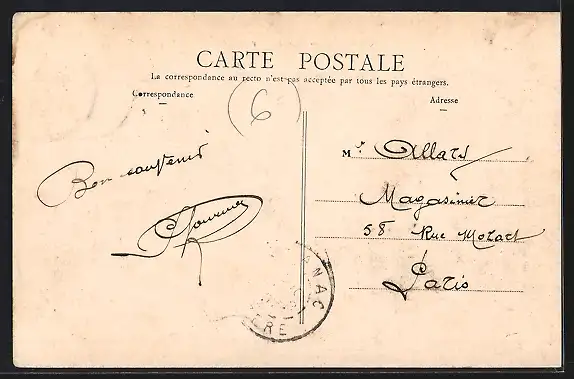 CARTE POSTALE
La correspondance au recto n'est pas acceptée par tous les pays étrangers.
Correspondance
Adresse
6
Bon souvenir
Mr. Allard
Magasinier
58 Rue Mozart
Paris
ANAC
RE